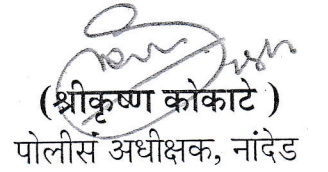 (श्रीकृष्ण कोकाटे )
पोलीस अधीक्षक, नांदेड